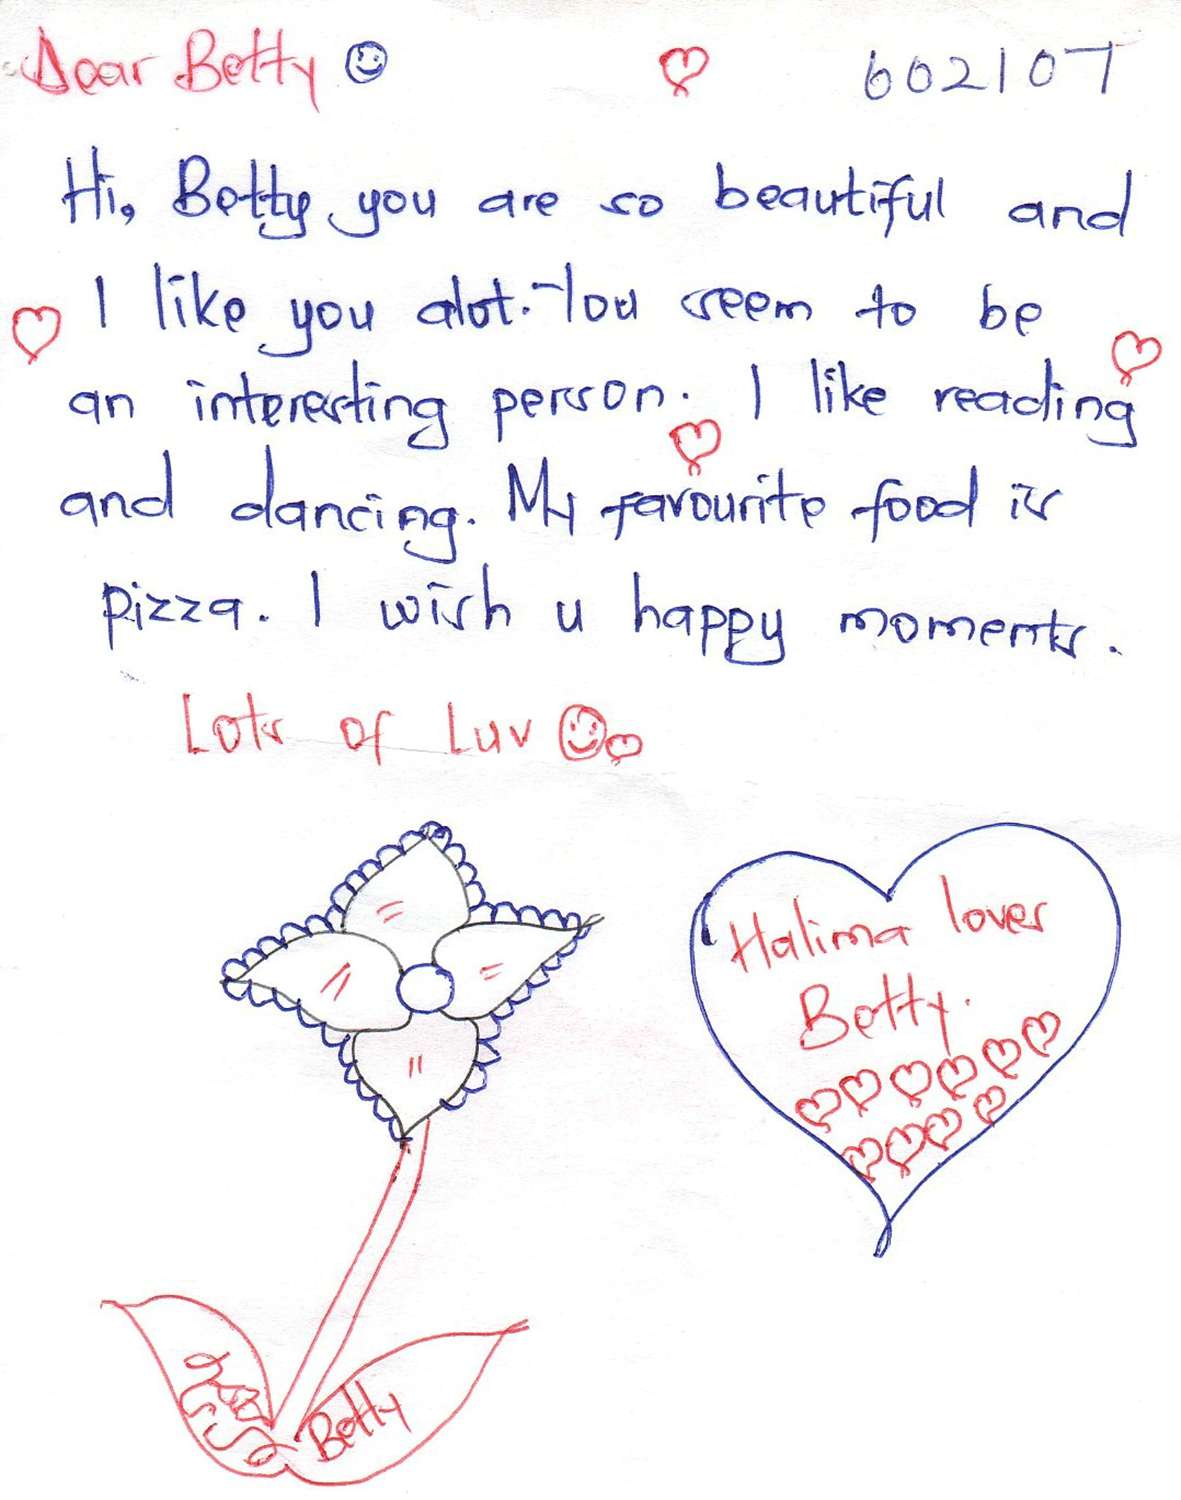 Dear Betty
602107
Hi, Betty you are so beautiful and
I like you alot. You seem to be
an interesting person. I like reading
and dancing. My favourite food is
pizza. I wish u happy moments.
Lots of Luv
Halima loves
Betty.
Betty